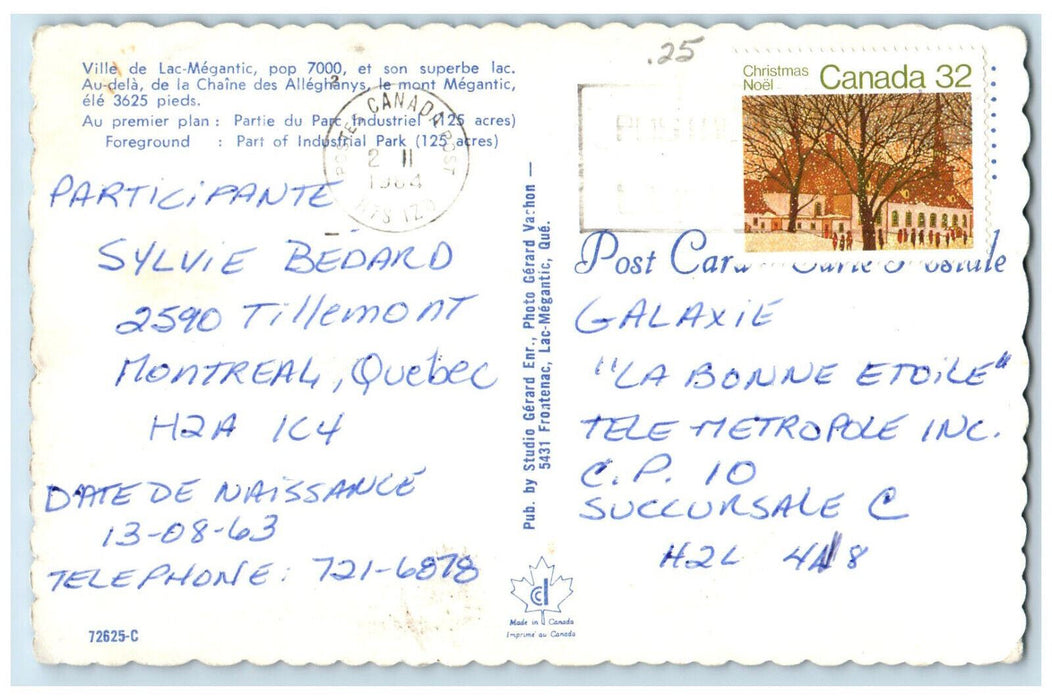 .25
Ville de Lac-Mégantic, pop 7000, et son superbe lac.
Au-delà, de la Chaîne des Alléghanys, le mont Mégantic,
élé 3625 pieds.
Au premier plan : Partie du Parc Industriel (125 acres)
Foreground : Part of Industrial Park (125 acres)
POSTES CANADA POST
2 II
1984
Christmas
Noël
Canada 32
PARTICIPANTE
SYLVIE BEDARD
2590 Tillemont
MONTREAL, Quebec
H2A 1C4
DATE DE NAISSANCE
13-08-63
TELEPHONE: 721-6878
72625-C
Pub. by Studio Gérard Enr., Photo Gérard Vachon —
5431 Frontenac, Lac-Mégantic, Qué.
Made in Canada
Imprimé au Canada
Post Card - Carte Postale
GALAXIE
"LA BONNE ETOILE"
TELE METROPOLE INC.
C.P. 10
SUCCURSALE C
H2L 4A8